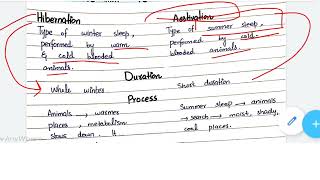 Hibernation
Type of winter sleep,
performed by warm
& cold blooded
animals.
Aestivation
Type of summer sleep,
performed by cold
blooded animals.
Duration
Whole winter
Short duration
Process
Animals → warmer
places, metabolism
slows down. It
Summer sleep → animals
→ search → moist, shady,
cool places.